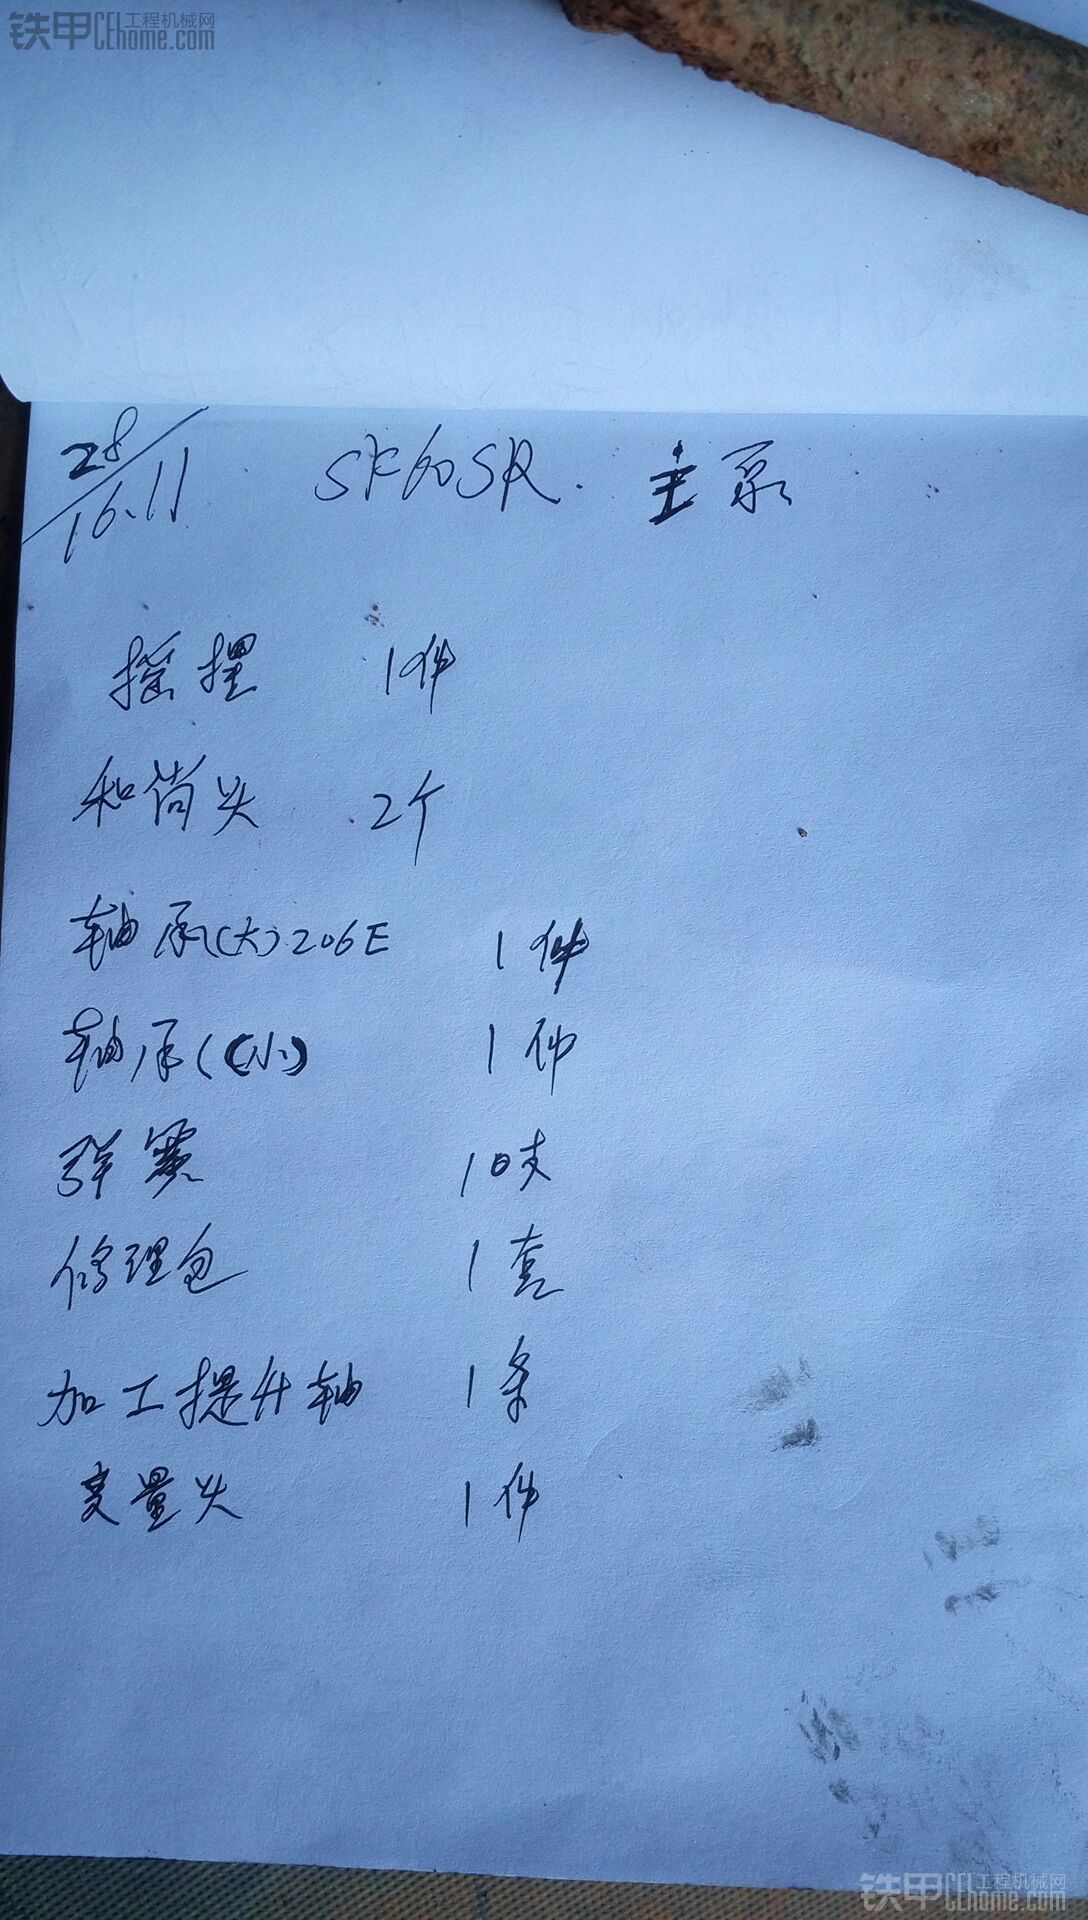 铁甲 CEhome.com 工程机械网
28/16.11 SK60SR. 主泵
摇摆 1件
和尚头 2个
轴承(大)206E 1件
轴承(小) 1件
弹簧 10支
修理包 1套
加工提升轴 1条
变量头 1件
铁甲 CEhome.com 工程机械网